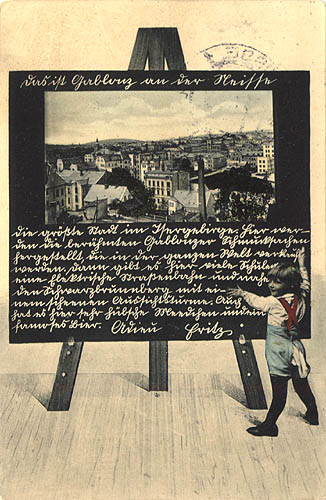 das ist Gablonz an der Neisse
die größte Stadt im Isergebirge. Hier wer-
den die berühmten Gablonzer Schmucksachen
hergestellt die in der ganzen Welt verkauft
werden, dann gibt es hier viele Schulen
eine elektrische Strassenbahn und nahe
den Schwarzbrunnberg mit ei-
nem scheenen Aussichtsturme. Auch
hat es hier sehr hübsche Meedchen und ein
famoses Bier. Adieu Fritz